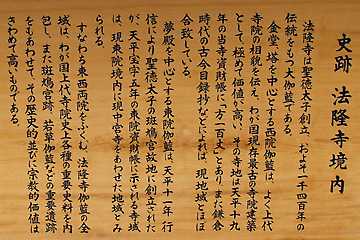 史跡 法隆寺境内
法隆寺は聖徳太子創立、およそ一千四百年の
伝統をもつ大伽藍である。
金堂、塔を中心とする西院伽藍は、よく上代
寺院の相貌を伝え、わが国現存最古の寺院建築
として極めて価値が高い。その寺地は天平十九
年の当寺資財帳に「方一百丈」とあり、また鎌倉
時代の古今目録抄などによれば、現地域とほぼ
合致している。
夢殿を中心とする東院伽藍は、天平十一年行
信により聖徳太子の斑鳩宮故地に創立された
が、天平宝字五年の東院資財帳に示される寺域
は、現東院境内に現中宮寺をあわせた地域とみ
られる。
すなわち東西両院をふくむ法隆寺伽藍の全
域は、わが国上代寺院史上各種の重要史料を内
包し、また斑鳩宮、若草伽藍などの重要遺跡
をもあわせて、その歴史的並びに宗教的価値は
きわめて高いものである。